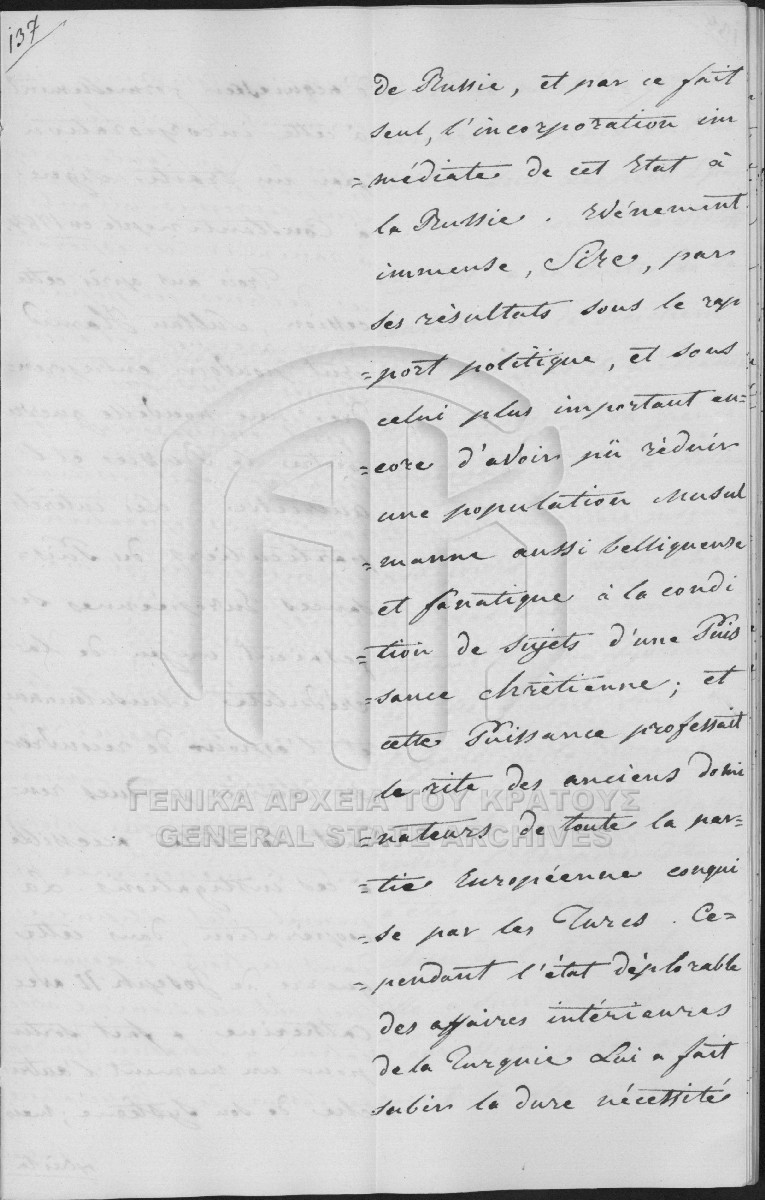 137
de Russie, et par ce fait
seul, l'incorporation im
=médiate de cet Etat à
la Russie. Evénement
immense, Sire, par
ses résultats sous le rap
=port politique, et sous
celui plus important en=
=core d'avoir pü réduir
une population Musul
=manne aussi belliqueuse
et fanatique à la condi
=tion de sujets d'une Puis
=sance chrètienne; et
cette Puissance professait
le rite des anciens domi
=nateurs de toute la par=
=tie Européenne conqui
=se par les Turcs. Ce=
=pendant l'état déplorable
des affaires intérieures
de la Turquie Lui a fait
subir la dure nécessité
ΓΕΝΙΚΑ ΑΡΧΕΙΑ ΤΟΥ ΚΡΑΤΟΥΣ
GENERAL STATE ARCHIVES